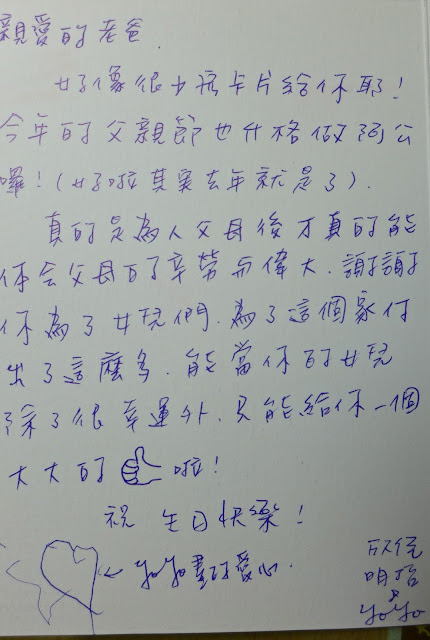 親愛的老爸
好像很少寫卡片給你耶!
今年的父親節也升格做阿公
囉!(好啦其實去年就是了).
真的是為人父母後才真的能
体会父母的辛勞与偉大.謝謝
你為了女兒們.為了這個家付
出了這麼多.能當你的女兒
除了很幸運外.只能給你一個
大大的 啦!
祝 生日快樂!
← yoyo畫的愛心.
明怡
&
yoyo